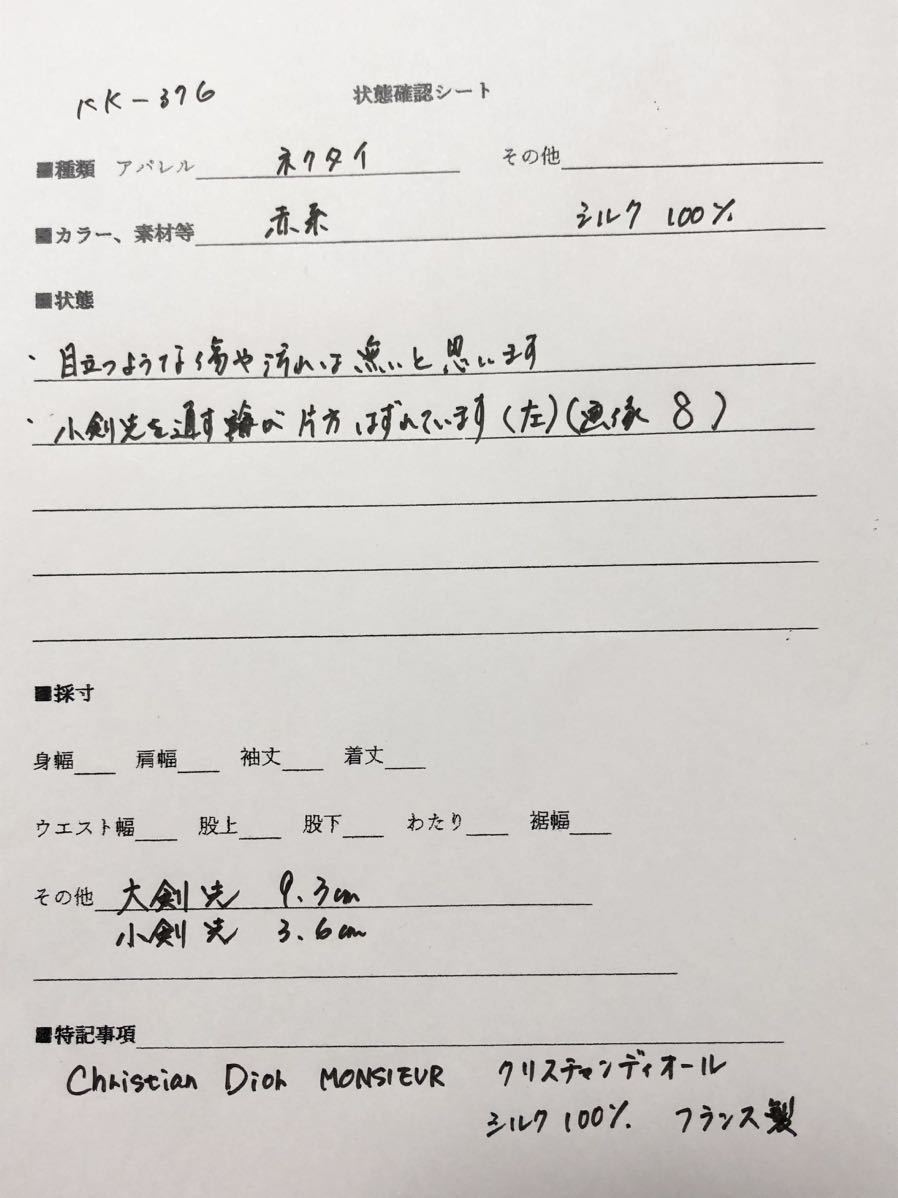 KK-376 状態確認シート
■種類 アパレル ネクタイ その他
■カラー、素材等 赤系 シルク 100%
■状態
・目立つような傷や汚れは無いと思います
・小剣先を通す輪が片方はずれています(左)(画像 8)
■採寸
身幅 肩幅 袖丈 着丈
ウエスト幅 股上 股下 わたり 裾幅
その他 大剣先 9.3cm
小剣先 3.6cm
■特記事項
Christian Dior MONSIEUR クリスチャンディオール
シルク 100% フランス製